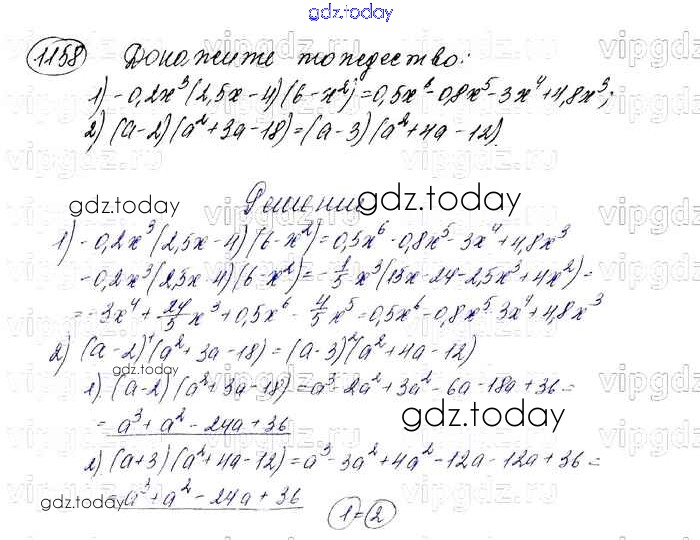 gdz.today
1158 Докажите тождество:
1) -0,2x³(2,5x-4)(6-x²)=0,5x⁶-0,8x⁵-3x⁴+4,8x³;
2) (a-2)(a²+3a-18)=(a-3)(a²+4a-12).
Решение
gdz.today gdz.today
1) -0,2x³(2,5x-4)(6-x²)=0,5x⁶-0,8x⁵-3x⁴+4,8x³
-0,2x³(2,5x-4)(6-x²)=-1/5x³(15x-24-2,5x³+4x²)=
=-3x⁴+24/5x³+0,5x⁶-4/5x⁵=0,5x⁶-0,8x⁵-3x⁴+4,8x³
2) (a-2)(a²+3a-18)=(a-3)(a²+4a-12)
gdz.today
1). (a-2)(a²+3a-18)=a³-2a²+3a²-6a-18a+36=
=a³+a²-24a+36
gdz.today
2) (a+3)(a²+4a-12)=a³-3a²+4a²-12a-12a+36=
=a³+a²-24a+36
gdz.today
1=2